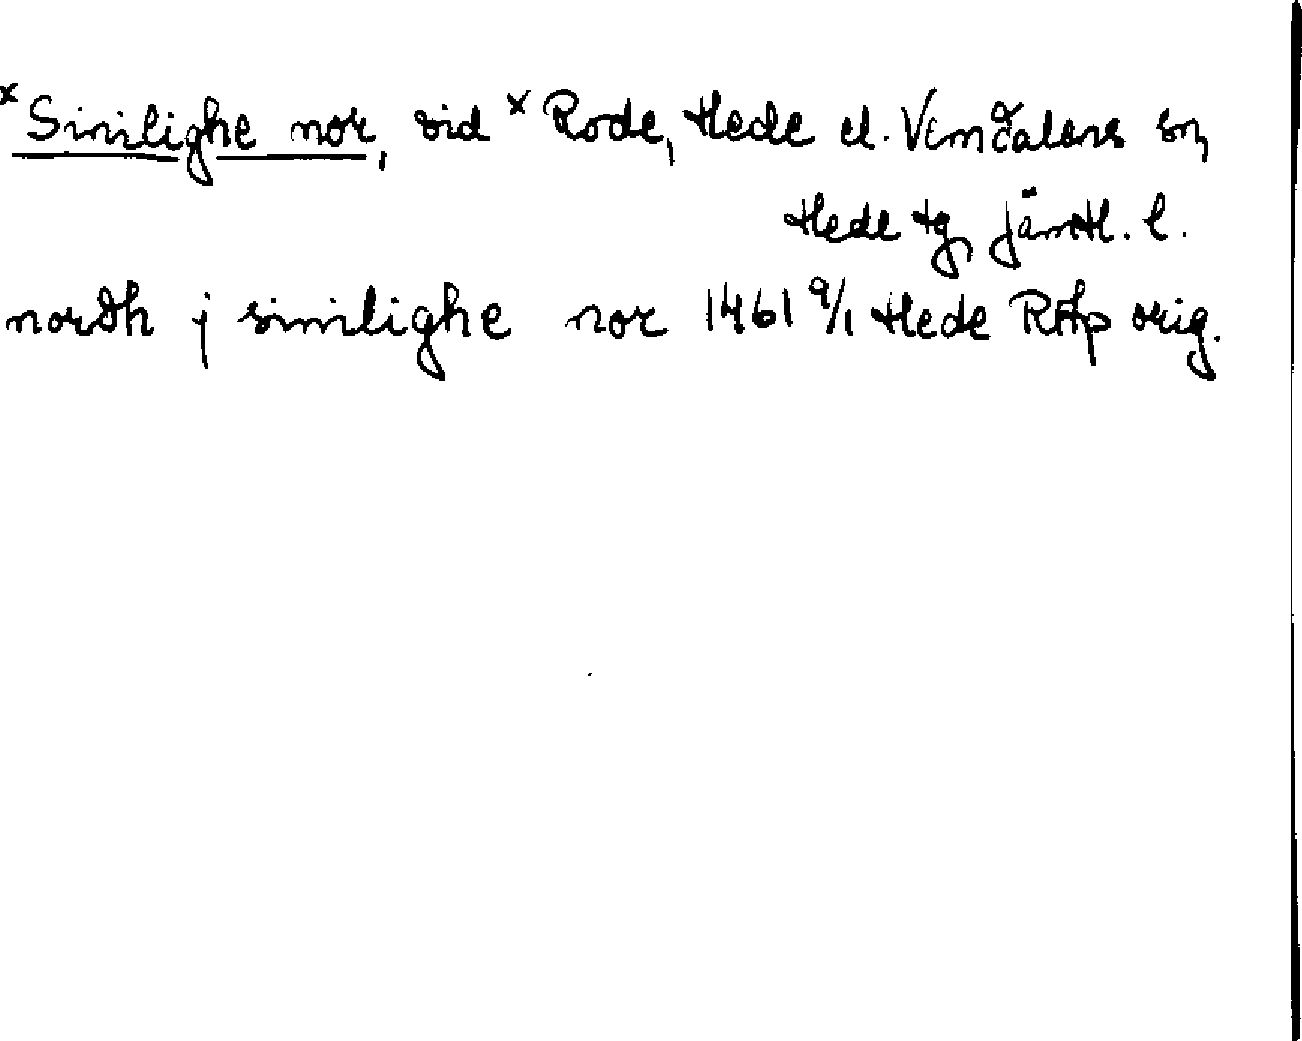 x Sinilighe nor, vid x Rode, Hede el. Vemdalens sn,
Hede tg, Jämtl. l.
nordh j sinilighe nor 1461 9/1 Hede RAp orig.